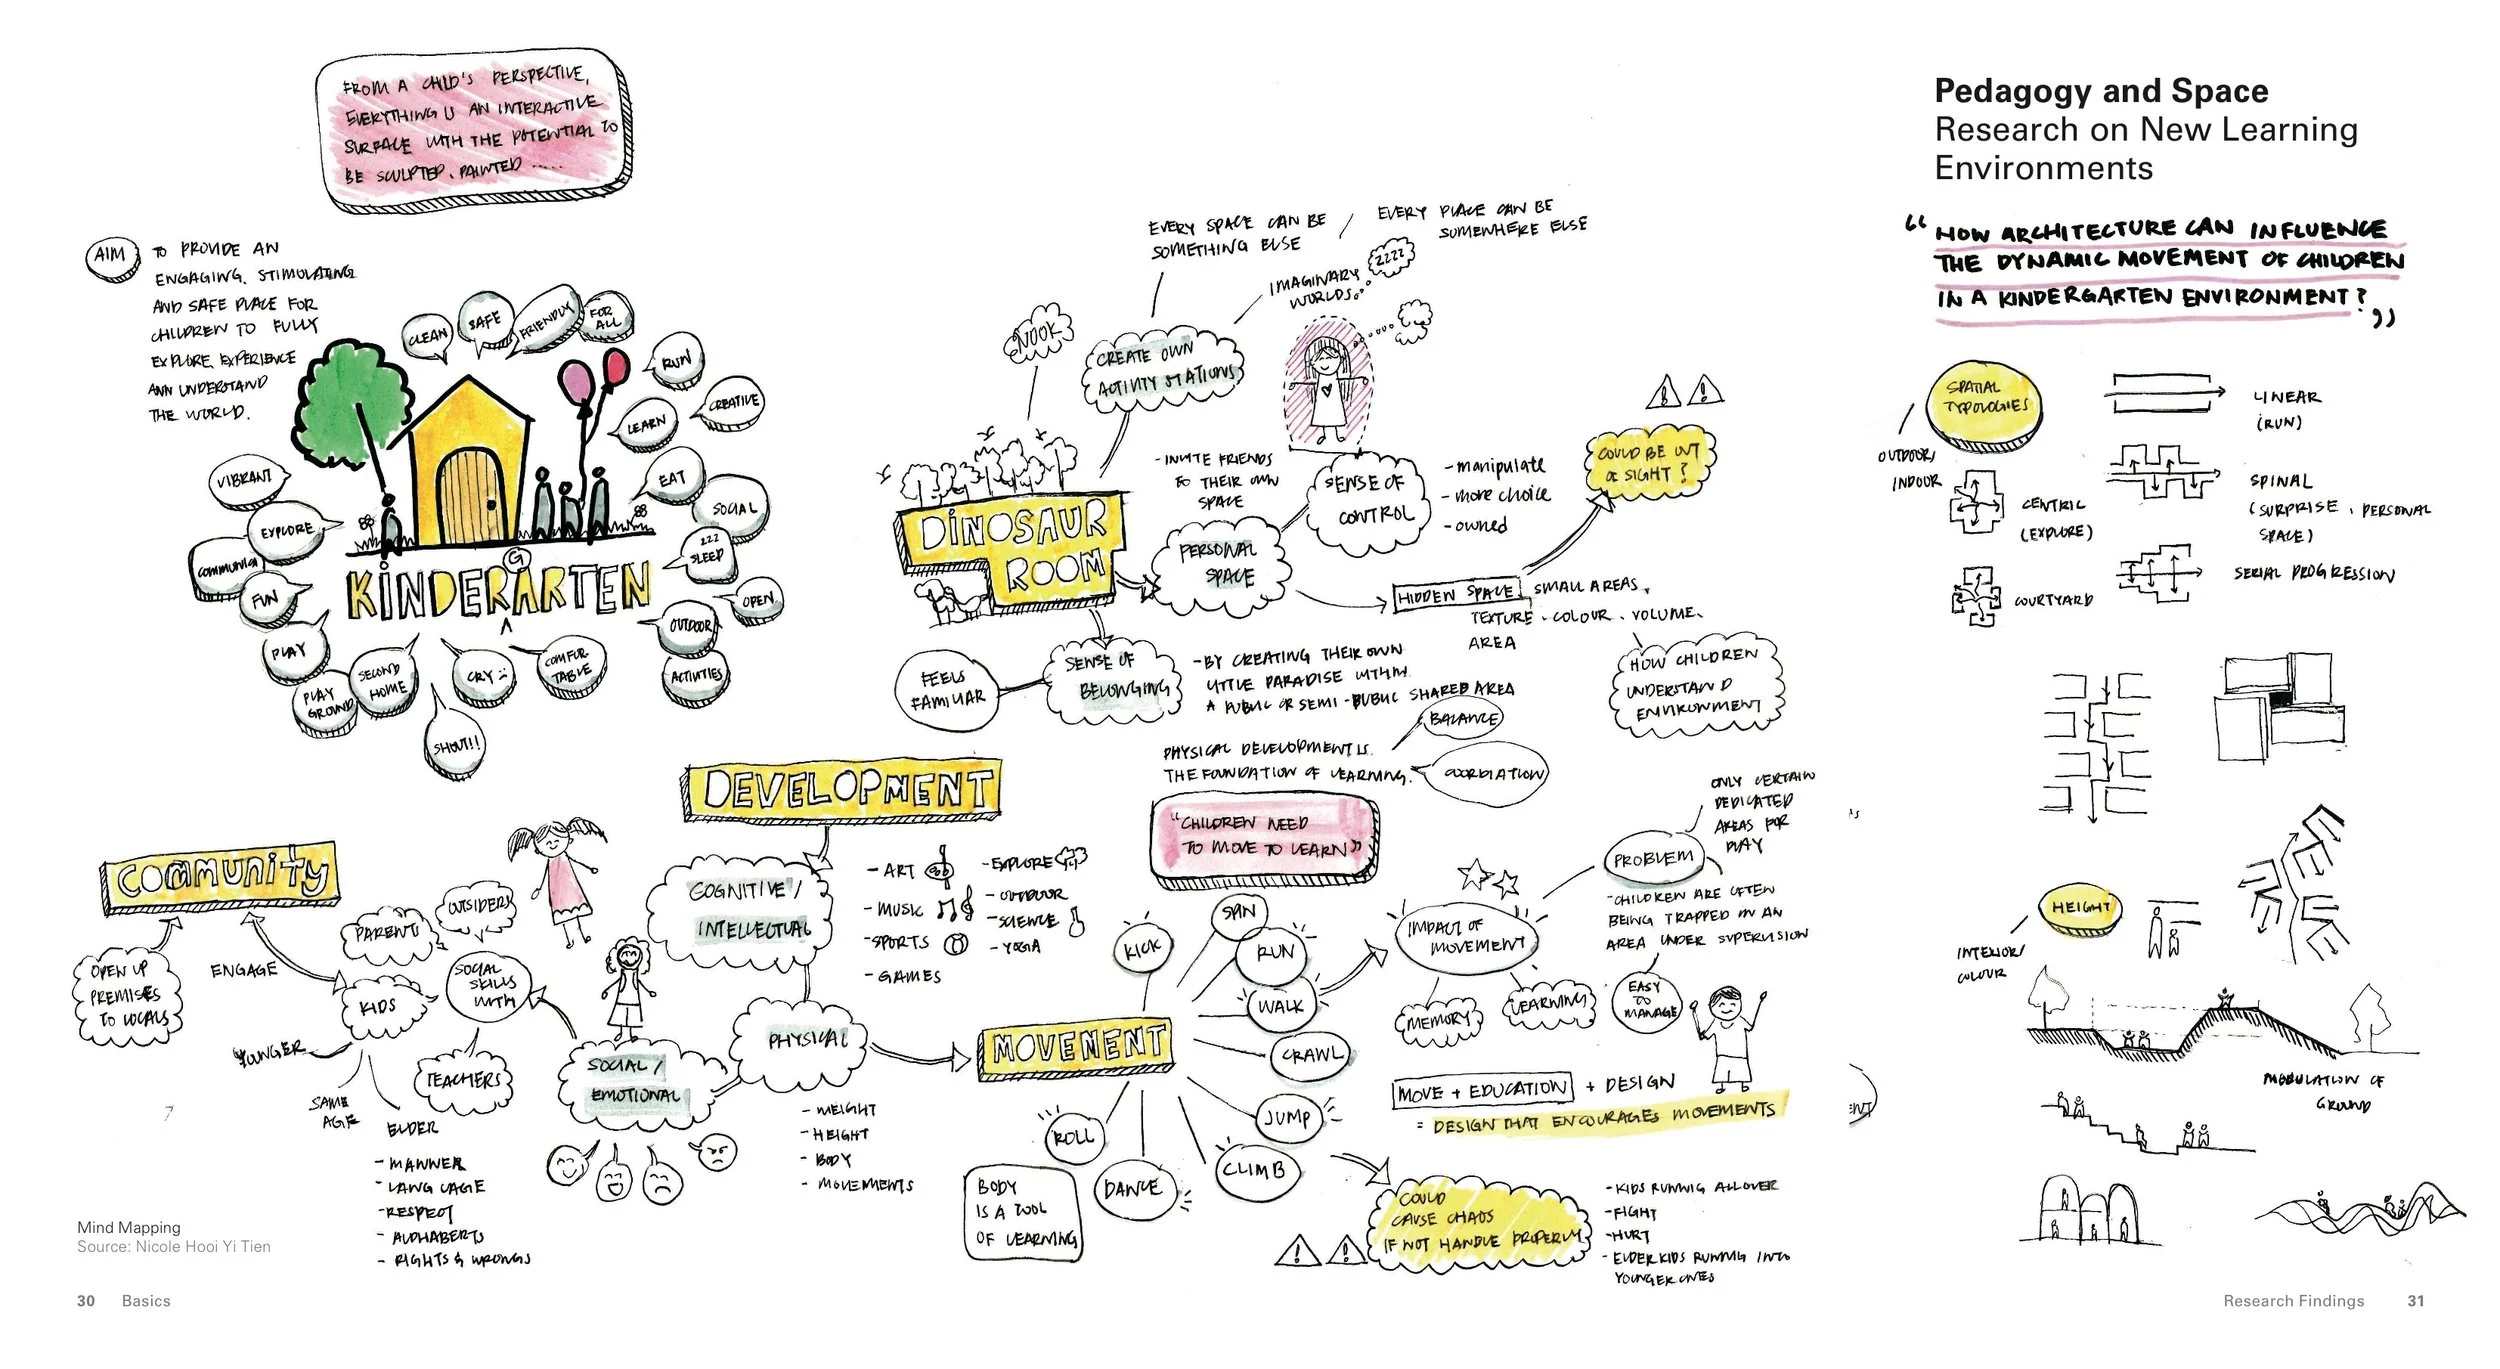 FROM A CHILD'S PERSPECTIVE,
EVERYTHING IS AN INTERACTIVE
SURFACE WITH THE POTENTIAL TO
BE SCULPTED, PAINTED .....
AIM
TO PROVIDE AN
ENGAGING, STIMULATING
AND SAFE PLACE FOR
CHILDREN TO FULLY
EXPLORE, EXPERIENCE
ANN UNDERSTAND
THE WORLD.
CLEAN
SAFE
FRIENDLY
FOR
ALL
RUN
CREATIVE
LEARN
EAT
SOCIAL
ZZZ
SLEEP
OPEN
OUTDOOR
ACTIVITIES
COMFOR
TABLE
CRY :(
SHOUT!!
SECOND
HOME
PLAY
GROUND
PLAY
FUN
EXPLORE
VIBRANT
G
KINDERARTEN
EVERY SPACE CAN BE
SOMETHING ELSE
/
EVERY PLACE CAN BE
SOMEWHERE ELSE
ZZZZ
IMAGINARY
WORLDS
NOOK
CREATE OWN
ACTIVITY STATIONS
DINOSAUR
ROOM
- INVITE FRIENDS
TO THEIR OWN
SPACE
PERSONAL
SPACE
SENSE OF
CONTROL
- manipulate
- more choice
- owned
COULD BE OUT
OF SIGHT?
HIDDEN SPACE
SMALL AREAS,
TEXTURE . COLOUR . VOLUME.
AREA
HOW CHILDREN
UNDERSTAND
ENVIRONMENT
FEELS
FAMILIAR
SENSE OF
BELONGING
- BY CREATING THEIR OWN
LITTLE PARADISE WITHIN
A PUBLIC OR SEMI-PUBLIC SHARED AREA
PHYSICAL DEVELOPMENT IS
THE FOUNDATION OF LEARNING.
BALANCE
"CHILDREN NEED
TO MOVE TO LEARN"
DEVELOPMENT
COGNITIVE /
INTELLECTUAL
- ART
- MUSIC
- SPORTS
- GAMES
- EXPLORE
- OUTDOOR
- SCIENCE
- YOGA
COMMUNITY
OPEN UP
PREMISES
TO LOCALS
ENGAGE
KIDS
YOUNGER
SAME
AGE
ELDER
- MANNER
- LANGUAGE
- RESPECT
- ALPHABERTS
- RIGHTS & WRONGS
PARENT
OUTSIDERS
SOCIAL
SKILLS
WITH
TEACHERS
SOCIAL /
EMOTIONAL
PHYSICAL
- WEIGHT
- HEIGHT
- BODY
- MOVEMENTS
MOVEMENT
KICK
SPIN
RUN
WALK
CRAWL
JUMP
CLIMB
DANCE
ROLL
BODY
IS A TOOL
OF LEARNING
IMPACT OF
MOVEMENT
MEMORY
LEARNING
PROBLEM
ONLY CERTAIN
DEDICATED
AREAS FOR
PLAY
- CHILDREN ARE OFTEN
BEING TRAPPED IN AN
AREA UNDER SUPERVISION
EASY
TO
MANAGE
MOVE + EDUCATION + DESIGN
= DESIGN THAT ENCOURAGES MOVEMENTS
COULD
CAUSE CHAOS
IF NOT HANDLE PROPERLY
- KIDS RUNNIG ALL OVER
- FIGHT
- HURT
- ELDER KIDS RUNNIG INTO
YOUNGER ONES
Mind Mapping
Source: Nicole Hooi Yi Tien
30 Basics
Pedagogy and Space
Research on New Learning
Environments
"HOW ARCHITECTURE CAN INFLUENCE
THE DYNAMIC MOVEMENT OF CHILDREN
IN A KINDERGARTEN ENVIRONMENT?"
SPATIAL
TYPOLOGIES
OUTDOOR/
INDOOR
LINEAR
(RUN)
CENTRIC
(EXPLORE)
SPINAL
(SURPRISE, PERSONAL
SPACE)
COURTYARD
SERIAL PROGRESSION
HEIGHT
INTERIOR/
COLOUR
MODULATION OF
GROUND
Research Findings 31